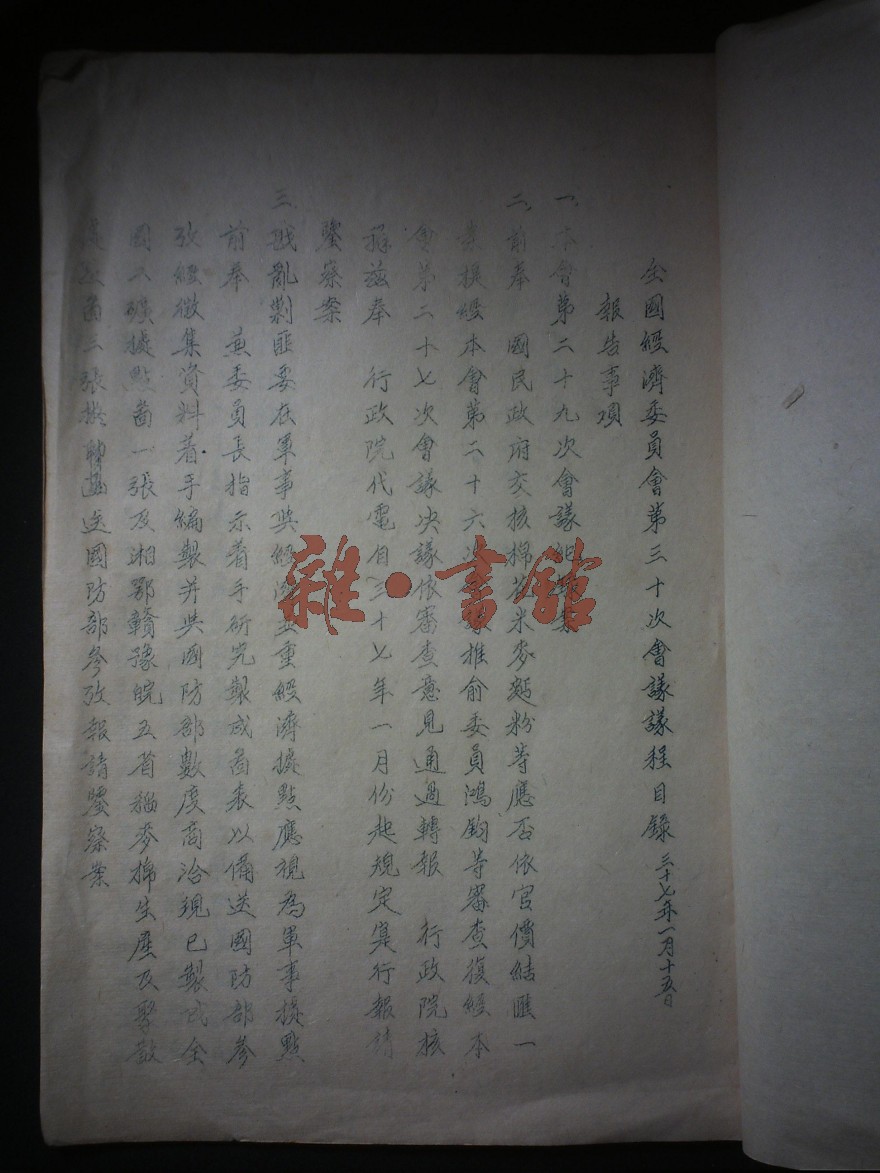 全國經濟委員會第三十次會議議程目錄 三十七年一月十五日
報告事項
一、本會第二十九次會議紀
二、前奉 國民政府交核棉花米麥麵粉等應否依官價結匯一
案提經本會第二十六次 推俞委員鴻鈞等審查復經本
會第二十七次會議決議依審查意見通過轉報 行政院核
茲奉 行政院代電自三十七年一月份起規定實行報請
鑒察案
三、戡亂剿匪要在軍事與經濟並重經濟據點應視為軍事據點
前奉 兼委員長指示着手研究製成圖表以備送國防部參
攷經徵集資料着手編製并與國防部數度商洽現已製成全
國工礦據點啚一張及湘鄂贛豫皖五省稻麥棉生產及聚散
啚三張 函送國防部參攷報請鑒察案
雜·書館